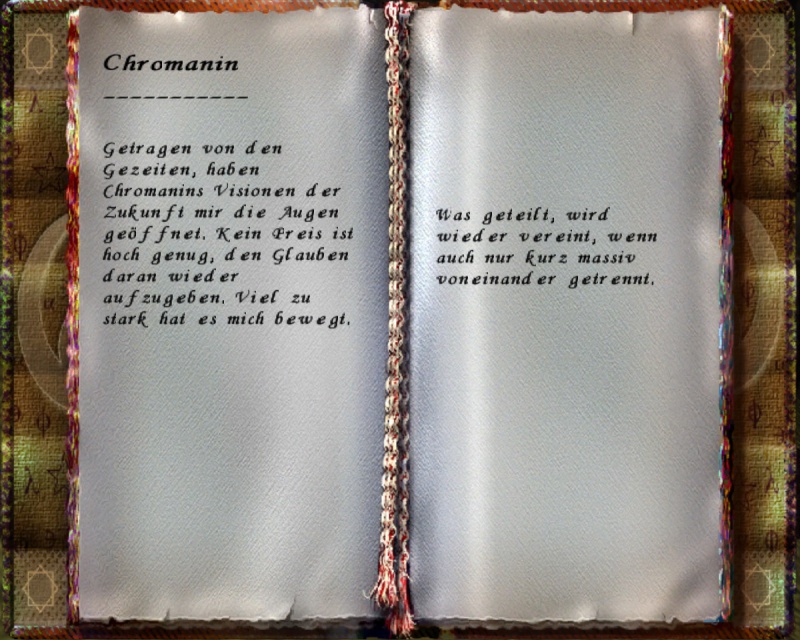 Chromanin
-----------
Getragen von den
Gezeiten, haben
Chromanins Visionen der
Zukunft mir die Augen
geöffnet. Kein Preis ist
hoch genug, den Glauben
daran wieder
aufzugeben. Viel zu
stark hat es mich bewegt.
Was geteilt, wird
wieder vereint, wenn
auch nur kurz massiv
voneinander getrennt.